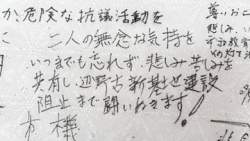 か、危険な抗議活動を
二人の無念な気持を
いつまでも忘れず、悲しみ苦しみを
共有し、辺野古新基地建設
阻止まで闘いぬきます!
有機
尊い
悲しみ、